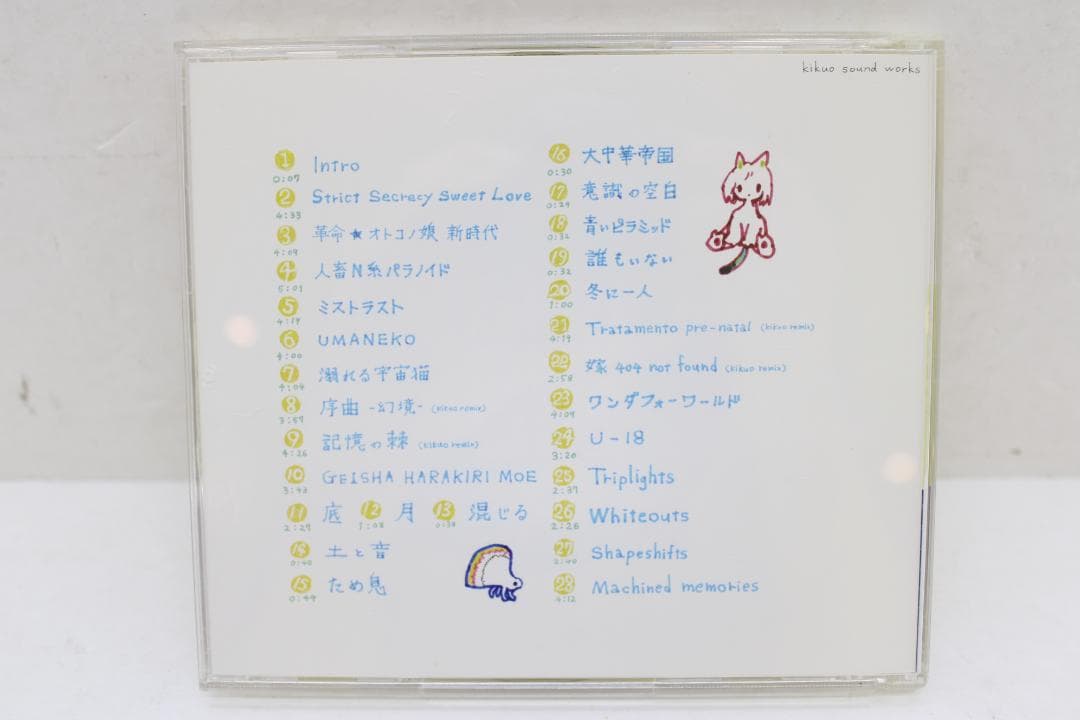 kikuo sound works
1 Intro
0:07
2 Strict Secrecy Sweet Love
4:33
3 革命★オトコノ娘 新時代
4:09
4 人畜N系パラノイド
5:01
5 ミストラスト
4:19
6 UMANEKO
4:00
7 溺れる宇宙猫
4:04
8 序曲 -幻境- (kikuo remix)
3:57
9 記憶の棘 (kikuo remix)
4:26
10 GEISHA HARAKIRI MOE
3:43
11 底 12 月 13 混じる
2:29 1:08 0:38
14 土と音
0:40
15 ため息
0:49
16 大中華帝国
0:30
17 意識の空白
0:29
18 青いピラミッド
0:32
19 誰もいない
0:32
20 冬に一人
1:00
21 Tratamento pre-natal (kikuo remix)
4:19
22 嫁 404 not found (kikuo remix)
2:58
23 ワンダフォーワールド
4:09
24 U-18
3:20
25 Triplights
2:37
26 Whiteouts
2:26
27 Shapeshifts
2:40
28 Machined memories
4:12